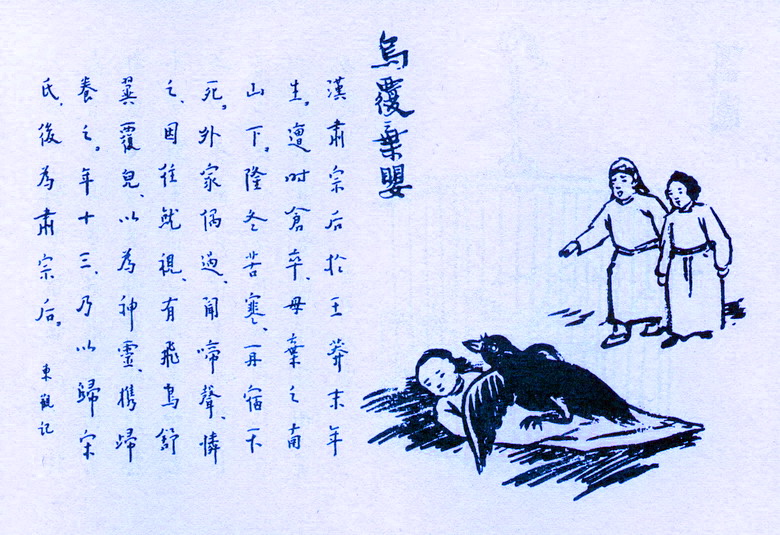 烏覆棄嬰
漢肅宗后於王莽末年
生。遭时倉卒、母棄之南
山下。隆冬苦寒、再宿不
死。外家偶過、闻啼聲、憐
之、因往就視、有飛烏舒
翼覆兒、以為神靈、携歸
養之。年十三、乃以歸宋
氏、後為肅宗后。
東觀记